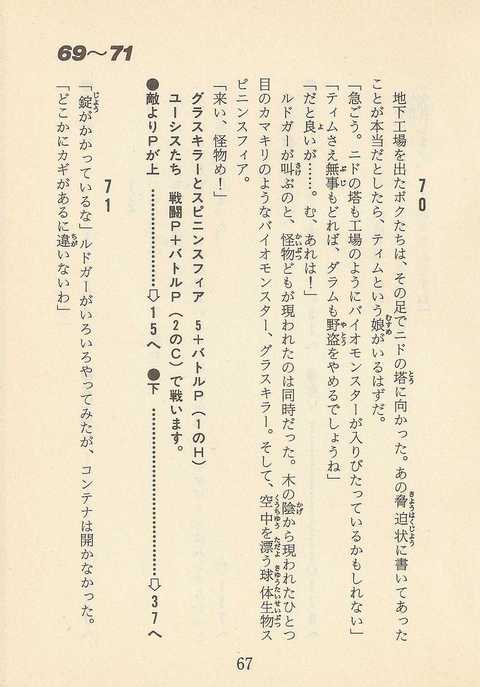 69〜71
70
地下工場を出たボクたちは、その足でニドの塔に向かった。あの脅迫状に書いてあった
ことが本当だとしたら、ティムという娘がいるはずだ。
「急ごう。ニドの塔も工場のようにバイオモンスターが入りびたっているかもしれない」
「ティムさえ無事もどれば、ダラムも野盗をやめるでしょうね」
「だと良いが……。む、あれは!」
ルドガーが叫ぶのと、怪物どもが現われたのは同時だった。木の陰から現われたひとつ
目のカマキリのようなバイオモンスター、グラスキラー。そして、空中を漂う球体生物ス
ピニンスフィア。
「来い、怪物め!」
グラスキラーとスピニンスフィア 5+バトルP(1のH)
ユーシスたち 戦闘P+バトルP(2のC)で戦います。
●敵よりPが上……………⇨15へ ●下……………⇨37へ
71
「錠がかかっているな」ルドガーがいろいろやってみたが、コンテナは開かなかった。
「どこかにカギがあるに違いないわ」
67